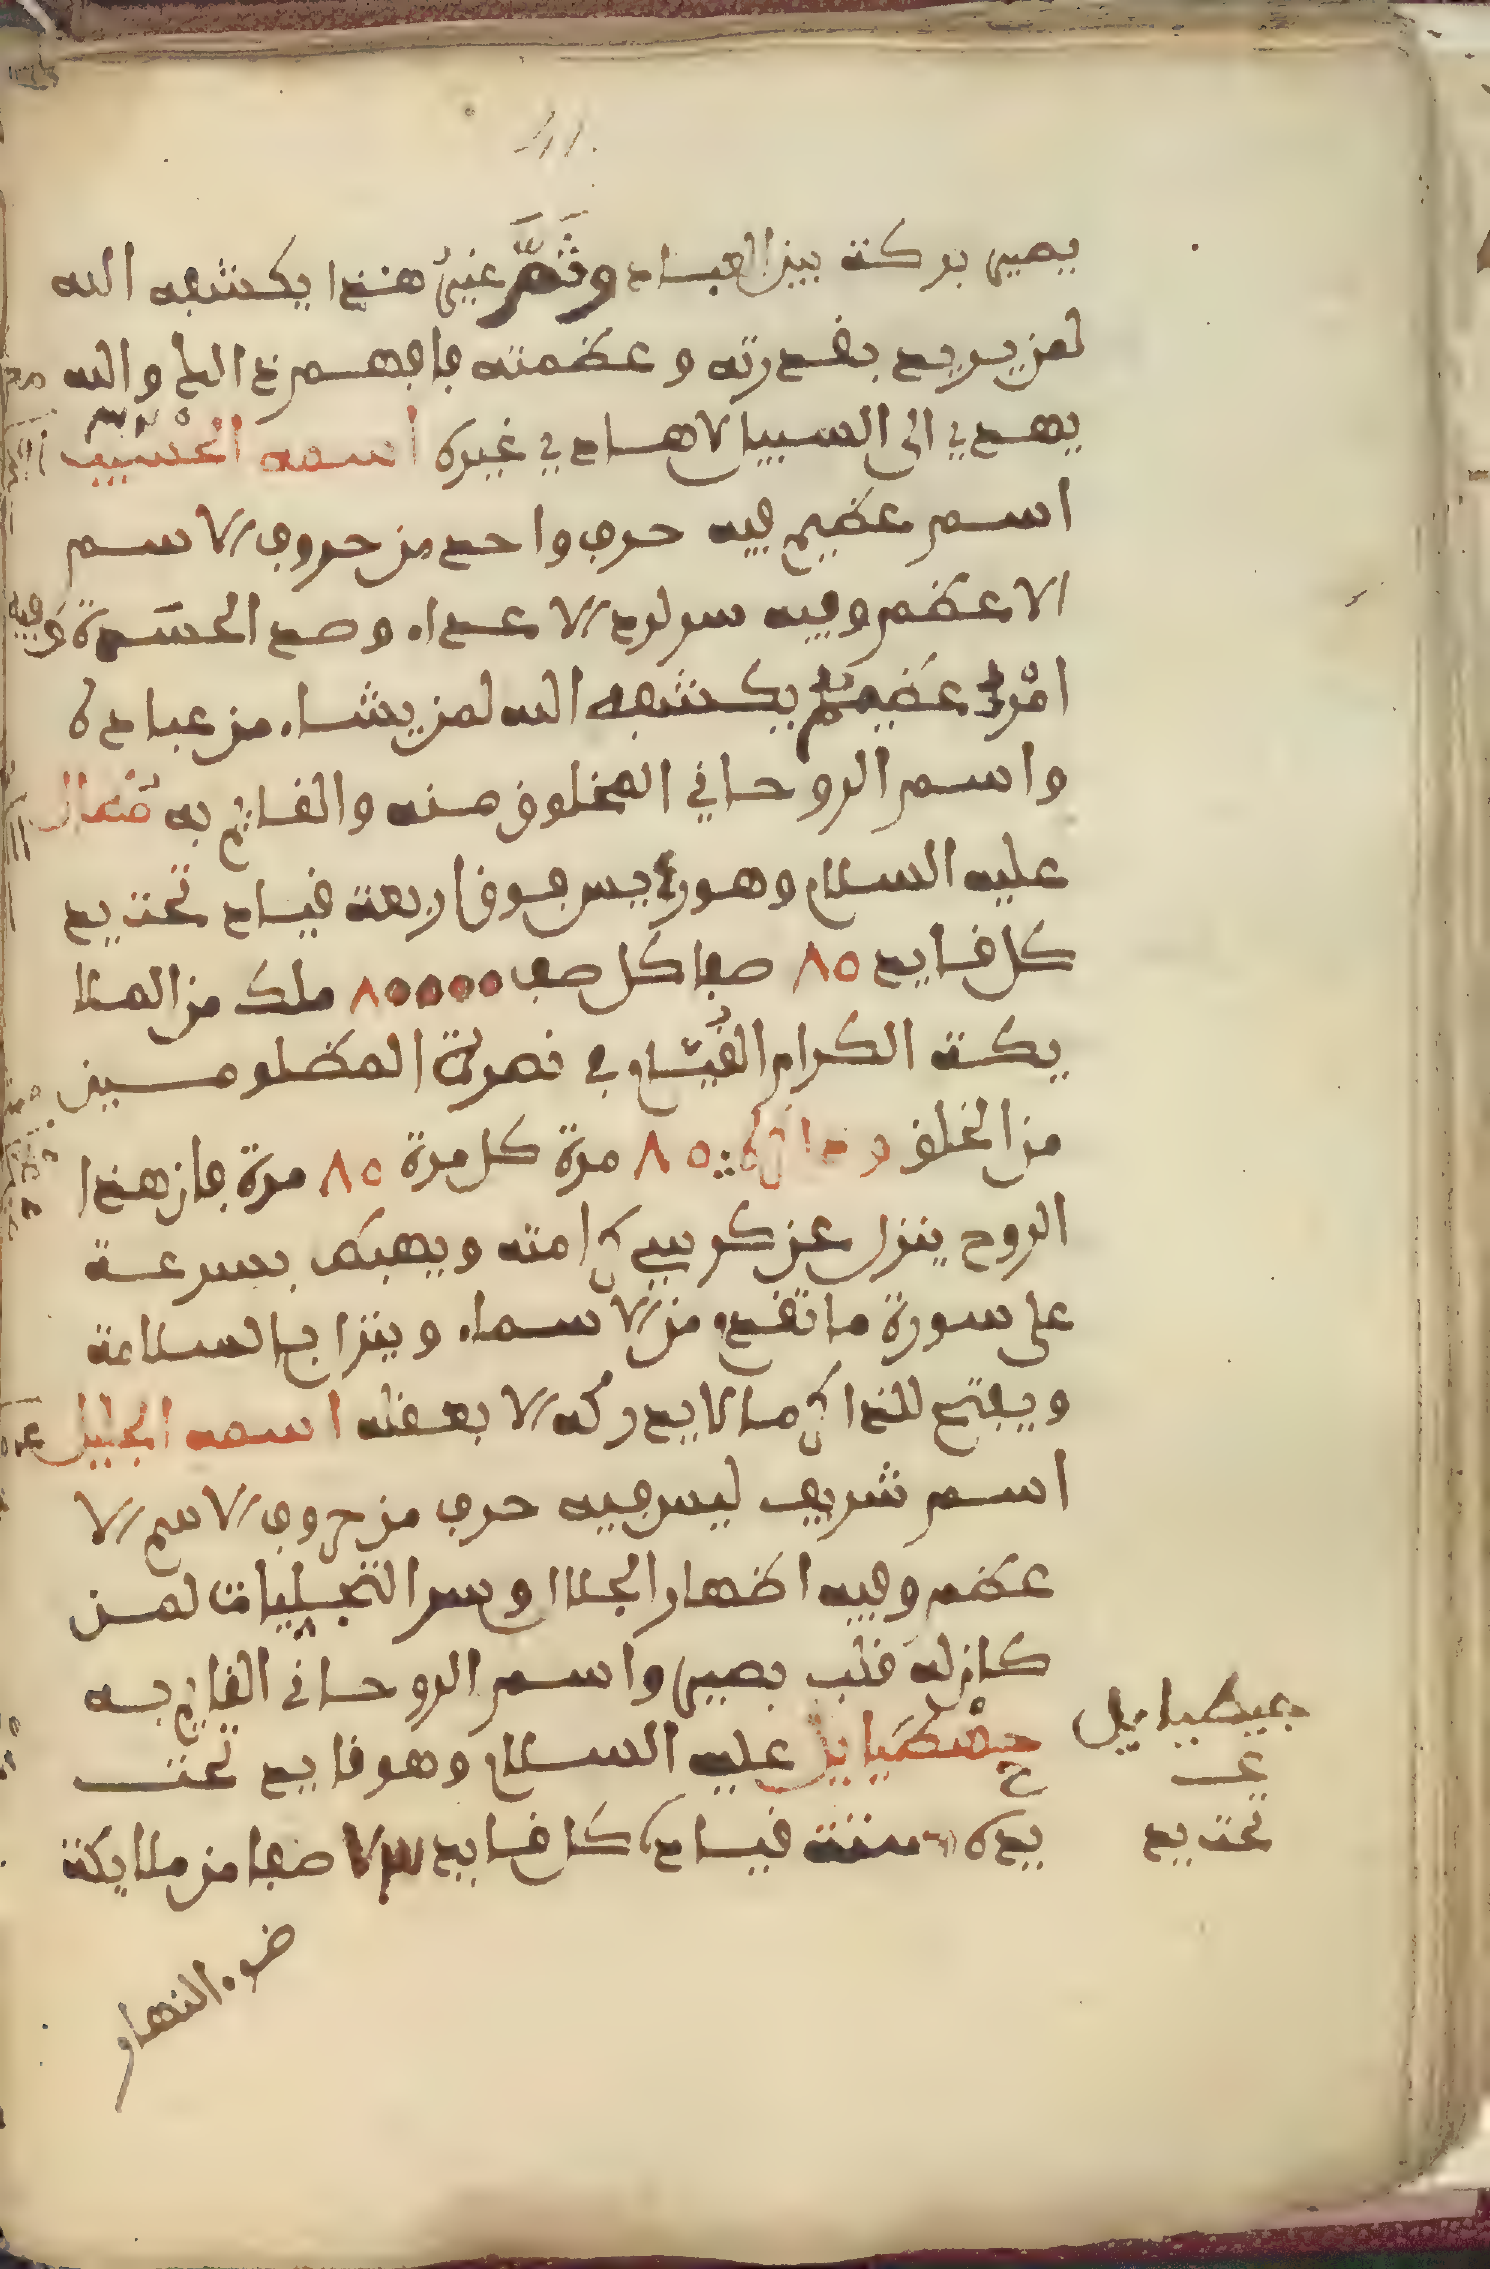 يصير بركة بين العباد وثَمَّ غير هذا يكشفه الله
لمن يريد بقدرته وعظمته فافهم ذالك والله
يهدي الى السبيل لا هادي غيره اسمه الحسيب
اسم عظيم فيه حرف واحد من حروف الاسم
الاعظم وفيه سر لرد الاعداء وصد الحسدة وفيه
امر عظيم يكشفه الله لمن يشاء من عباده
واسم الروحاني المخلوق منه والقايم به
عليه السلام وهو رءيس فوق اربعة قياد تحت يد
كل قايد ٨٥ صفا كل صف ٨٥٥٥٥ ملك من الملا
يكة الكرام القيام في نصرة المظلومين
من الخلق ٨٥ مرة كل مرة ٨٥ مرة فان هذا
الروح ينزل عن كرسي كرامته ويهبط بسرعة
على سورة ما تقدم من الاسماء وينزل بالسلامة
ويفتح للذاكر ما لا يدركه الا بعقله اسمه الجليل
اسم شريف ليس فيه حرف من حروف الاسم الا
عظم وفيه اظهار الجلال وسر التجليات لمن
كان له قلب بصير واسم الروحاني القايم به
عليه السلام وهو قايد تحت
يده ستة قياد كل قايد ٧٣ صفا من ملايكة
تحت يد
ضوء النهار